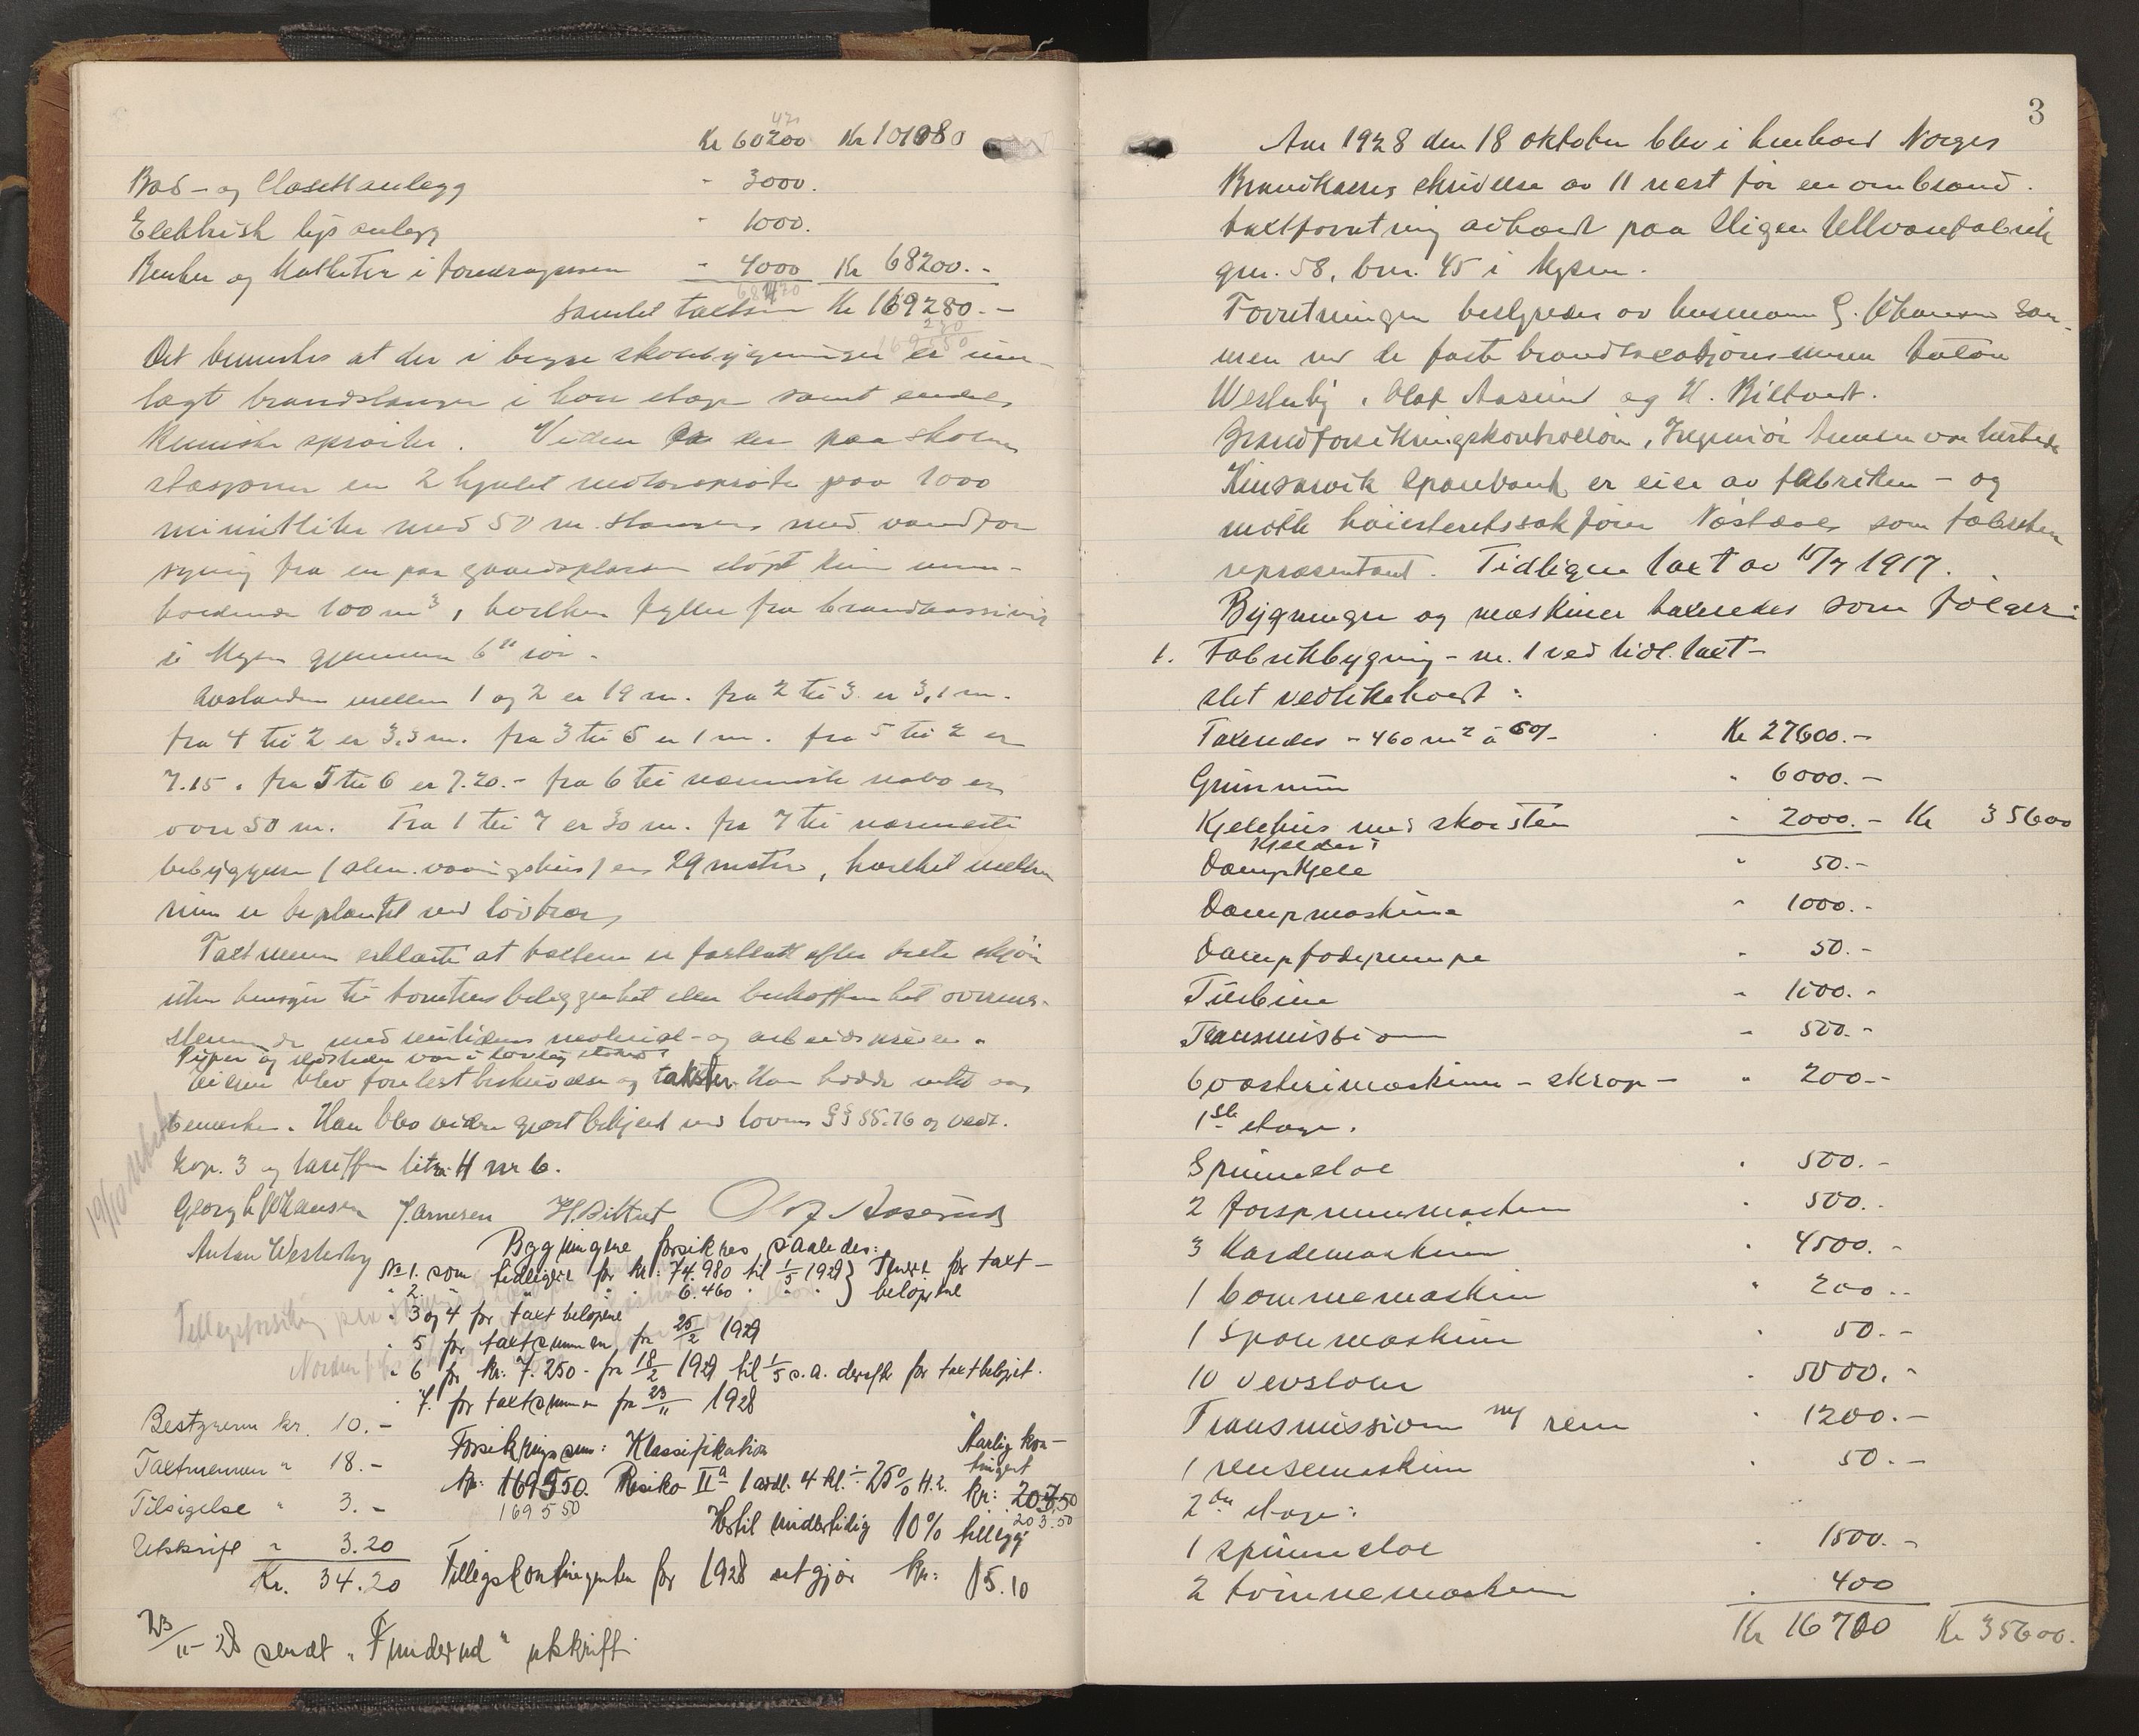 Kr 60200 Kr 101080
470
Bad- og Closettanlegg " 3000.
Elektrisk lys anlegg " 1000.
Benker og Katheter i foredragssalen " 4000 Kr 68200.-
68470
Samlet takstsum Kr 169280.-
270
169550
Det bemerkes at der i begge skolebygninger er inn-
lagt brandslanger i hver etage samt endel
kemiske sprøiter. Videre er der paa skolens
stasjoner en 2 hjulet motorsprøite paa 1000
minutliter med 50 m. slanger, med vandfor
syning fra en paa gaardsplassen støpt kum inne-
holdende 100 m³, hvilken fylles fra brandbassenget
i Mysen gjennem 6" rør.
Avstanden mellem 1 og 2 er 19 m. fra 2 til 3 er 3,1 m.
fra 4 til 2 er 3.3 m. fra 3 til 5 er 1 m. fra 5 til 2 er
7.15. fra 5 til 6 er 7.20.- fra 6 til nærmeste nabo er
over 50 m. Fra 1 til 7 er 30 m. fra 7 til nærmeste
bebyggelse (alm. vaaningshus) er 29 meter, hvilket mellem
rum er beplantet med løvtrær,
Takstmennene erklærte at taksten er fastsatt efter beste skjøn
uten hensyn til tomtens beliggenhet eller beskaffenhet overens-
stemmende med nutidens material- og arbeidspriser.
Piper og ildsteder var i lovlig stand.
Eieren blev forelest beskrivelse og takster. Han hadde intet at
bemerke. Han blev videre gjort bekjent med lovens §§ 55.76 og vedt.
kap. 3 og tariffen litra H nr 6.
19/10
Georg L. Johansen J. Arnesen H. Biltvet Olaf Aaserud
Anton Westerby
Bygningene forsikres saaledes:
No 1. som tidligere for kr: 74.980 til 1/5 1929 } Derefter for takst-
" 2. " " " 6.460 " " " } beløpene
" 3 og 4 for takst beløpene
" 5 for takstsummen fra 25/2 1929
" 6 for kr: 7.250- fra 18/2 1929 til 1/5 s.a. derefter for takstbeløpet.
" 7. for takstsummen fra 23/11 1928
Tilleggsforsikring
Bestyreren kr. 10.-
Takstmennene " 18.-
Tilsigelse " 3.-
Utskrift " 3.20
Kr. 34.20
Forsikringssum: Klassifikation Aarlig kon-
tingent
kr: 169550. Risiko IIa 1 avdl. 4 kl. ÷ 25% H.2. kr: 203,50
169550 203.50
Hertil midlertidig 10% tillegg
Tilleggskontingenten for 1928 utgjør kr: 15.10
23/11-28 sendt "Funderud" utskrift.
3
Aar 1928 den 18 oktober blev i henhold Norges
Brandkasses skrivelse av 11 næst før en ombrand
takstforretning avholdt paa Eligen Ullvarefabrik
gnr. 58, bnr. 45 i Mysen.
Forretningen bestyredes av lensmann G. Johansen sam-
men med de faste brandtakstmenn Anton
Westerby, Olaf Aaserud og H. Biltvedt.
Brandforsikringskontrollør, Ingeniør Arnesen var tilstede
Kinsarvik Sparebank er eier av fabriken - og
møtte høiesterettssakfører som fabrikens
representant. Tidligere takst av 15/7 1917.
Bygninger og maskiner takseredes som følger:
1. Fabrikbygning - nr. 1 ved tidl. takst -
slet vedlikeholdt:
Takseredes - 460 m² à 60/- Kr 27600.-
Grunnmur " 6000.-
Kjelehus med skorsten " 2000.- Kr 35600
Kjelder:
Dampkjele " 50.-
Dampmaskine " 1000.-
Dampfødepumpe " 50.-
Turbine " 1500.-
Transmission " 500.-
6 vaskerimaskiner - skrap - " 200.-
1ste etage.
Spinnestol " 500.-
2 forspinnemaskin " 500.-
3 Kardemaskiner " 4500.-
1 bommemaskin " 200.-
1 Spolemaskin " 50.-
10 Vevstoler " 5000.-
Transmission m/ rem " 1200.-
1 rensemaskin " 50.-
2den etage:
1 spinnestol " 1500.-
2 tvinnemaskin " 400
Kr 16700 Kr 35600.